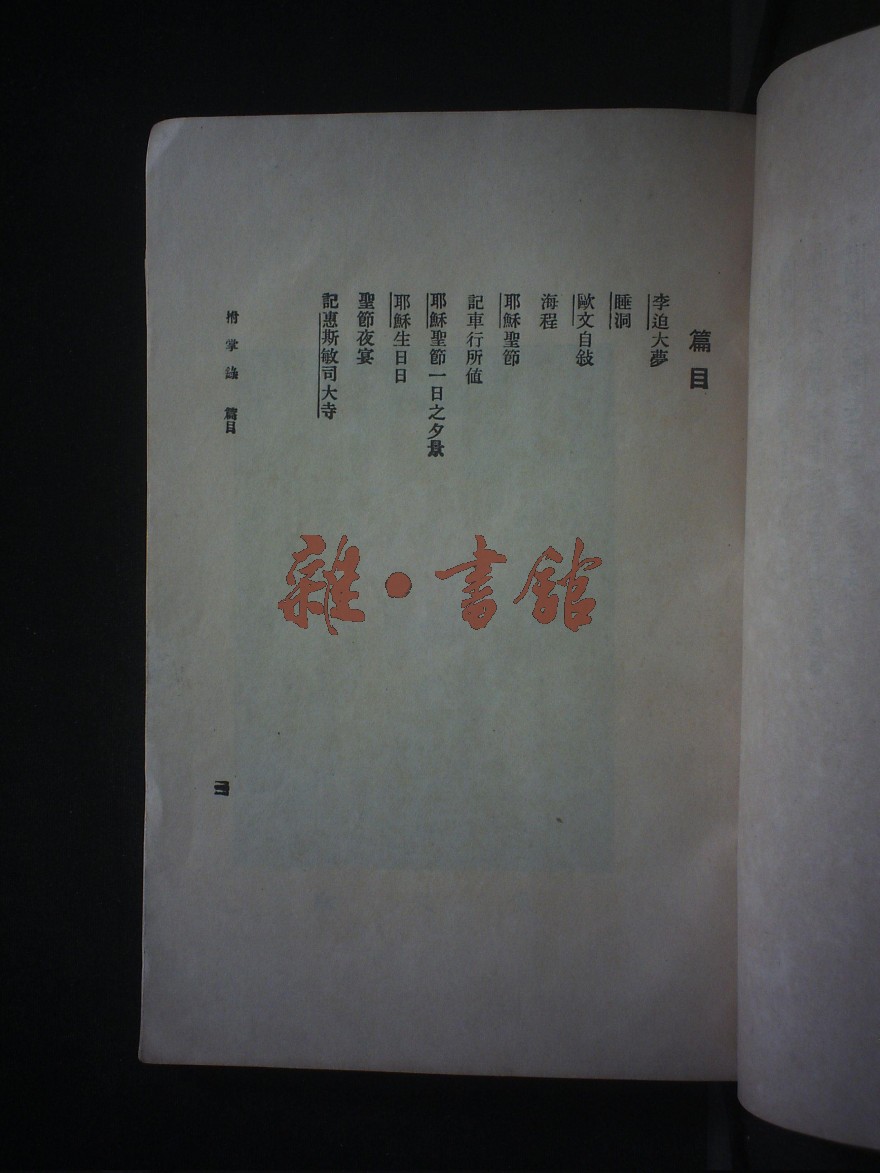 篇目
李迫大夢
睡洞
歐文自敍
海程
耶穌聖節
記車行所値
耶穌聖節一日之夕景
耶穌生日日
聖節夜宴
記惠斯敏司大寺
拊掌錄 篇目
雜·書館